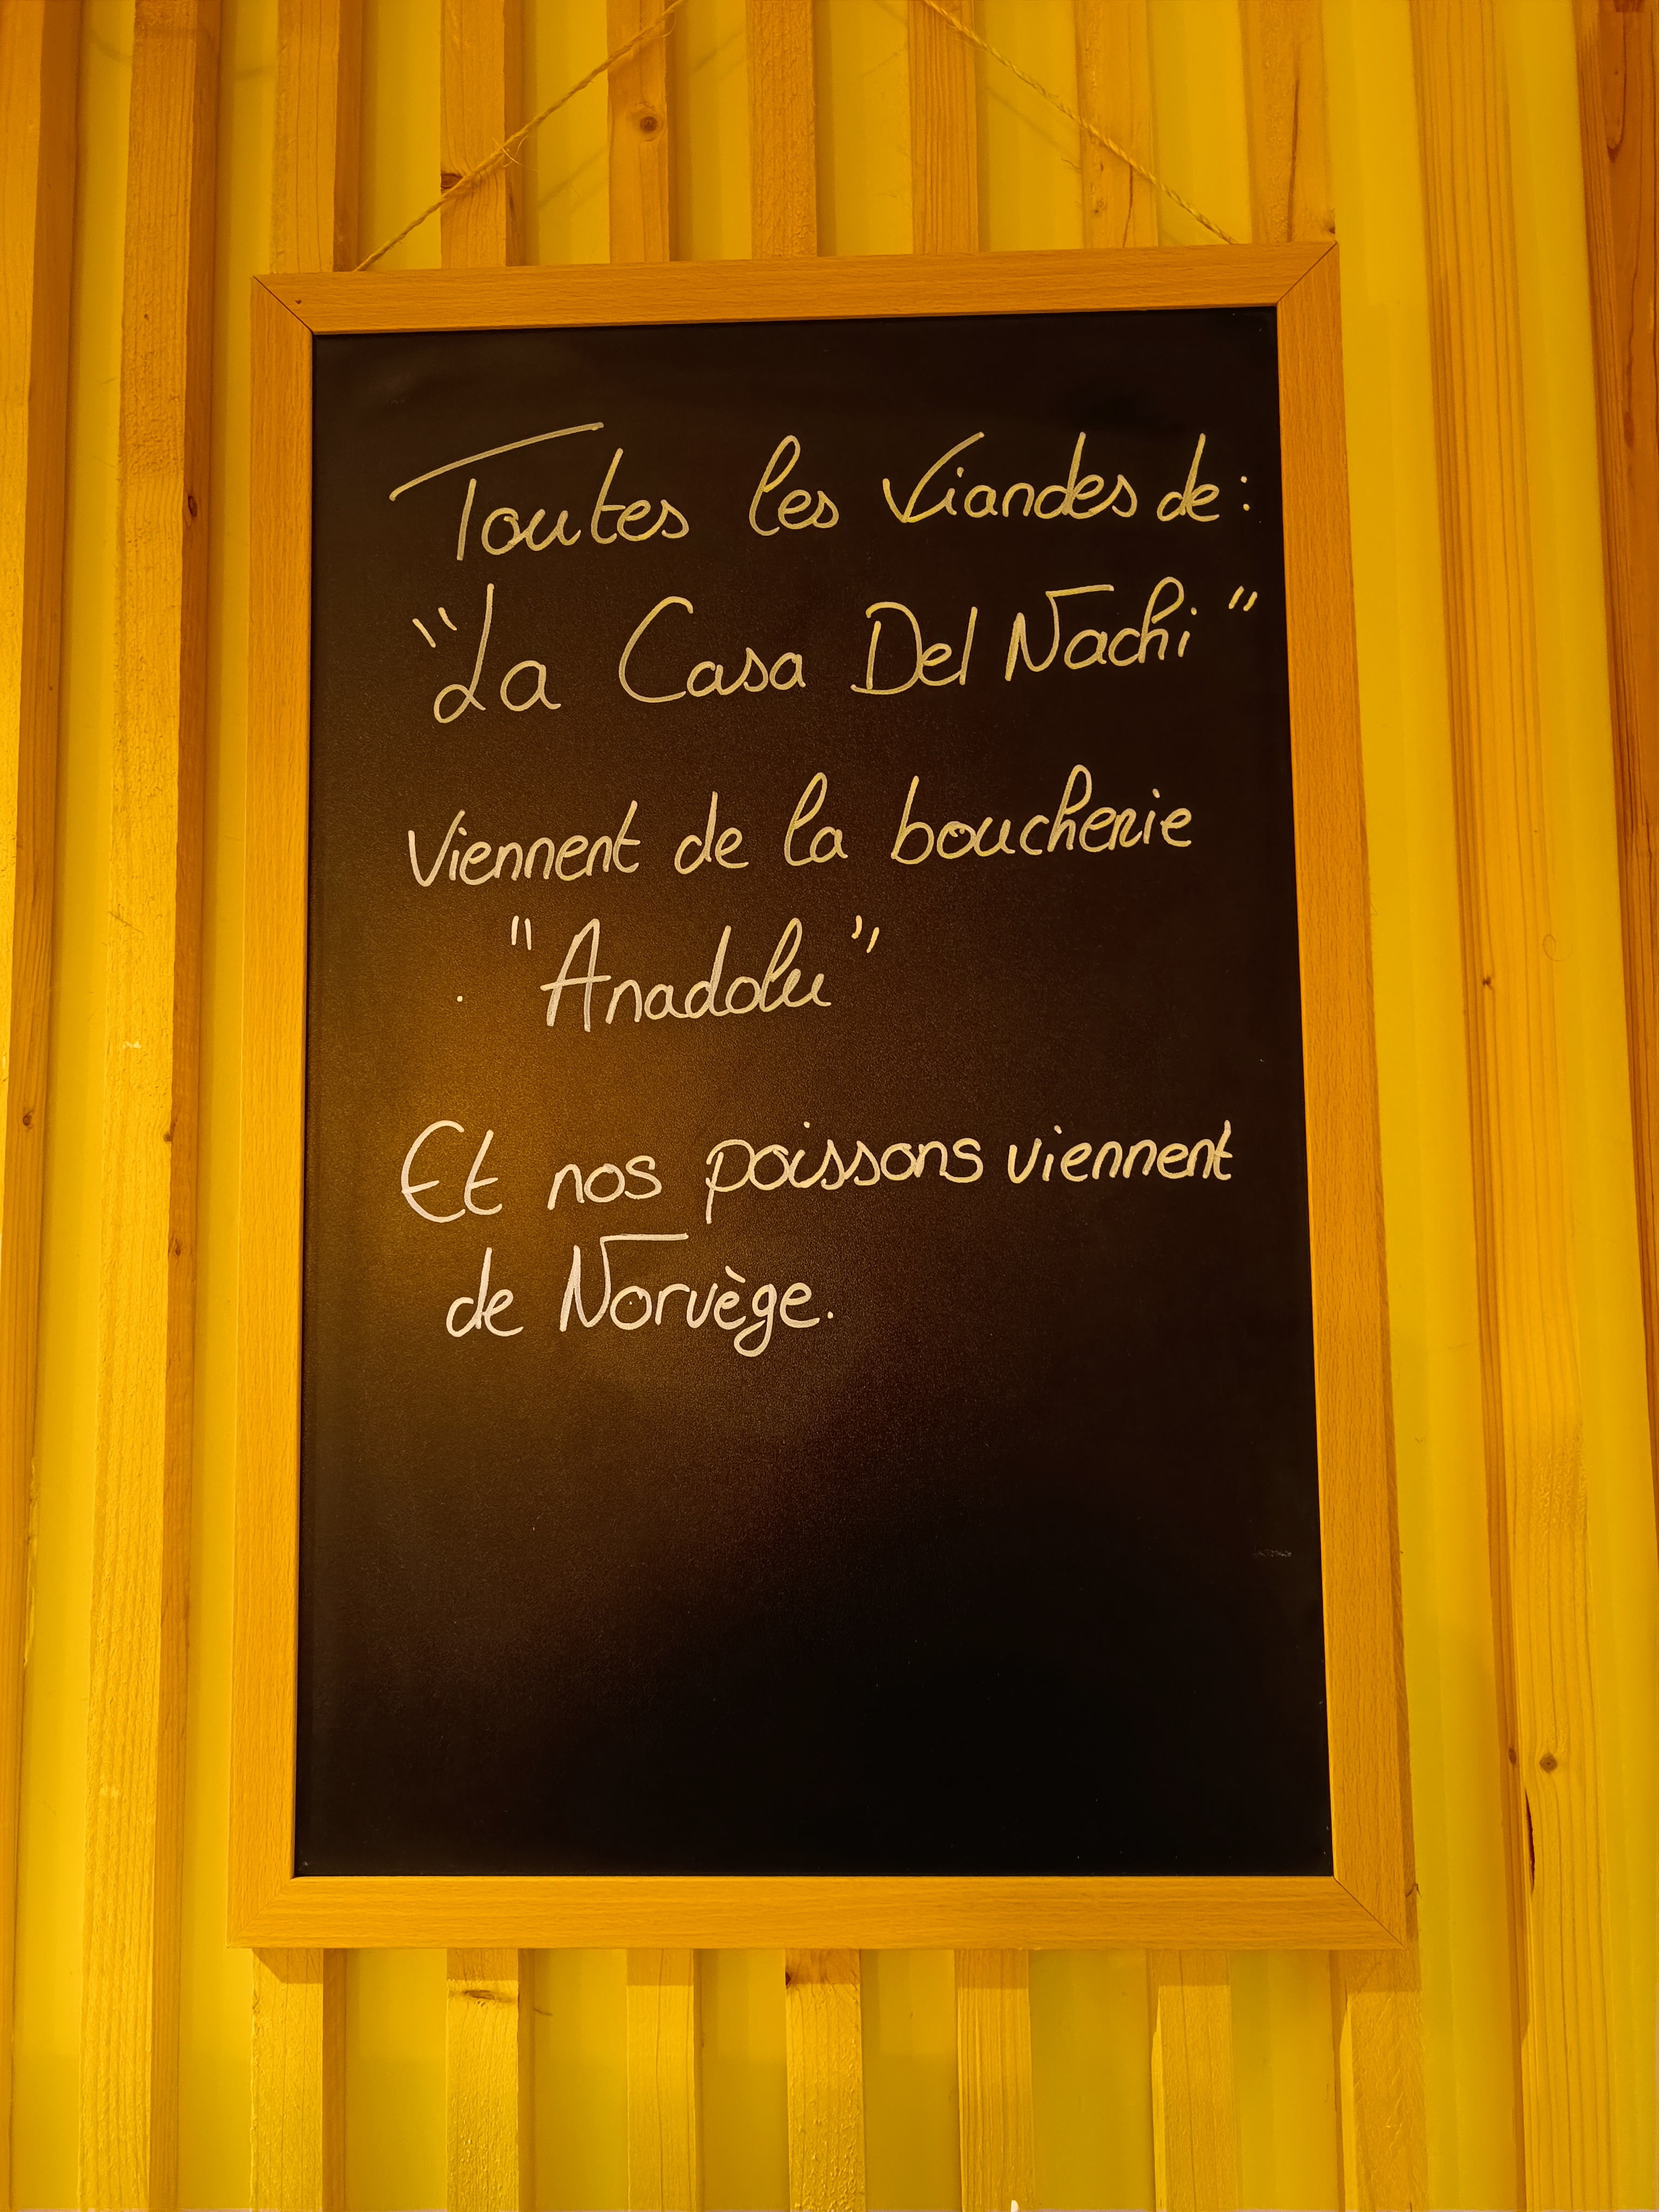 Toutes les Viandes de :
"La Casa Del Nachi"
Viennent de la boucherie
"Anadolu"
Et nos poissons viennent
de Norvège.